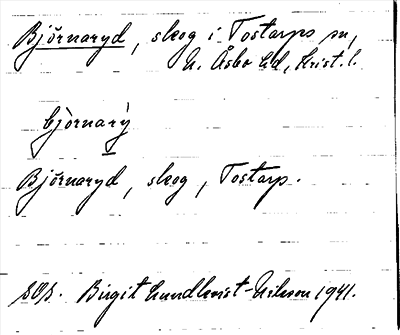 Björnaryd, skog i Tostarps sn,
N. Åsbo hd, Krist. l.
bjò̀rnarỳ
Björnaryd, skog, Tostarp.
Birgit Lundkvist-Nilsson 1941.